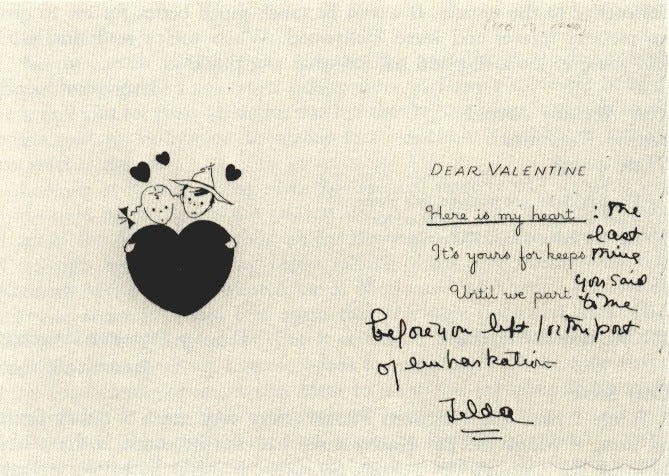 DEAR VALENTINE
Here is my heart : The
last
It's yours for keeps thing
you said
Until we part to me
before you left for the port
of embarkation
Zelda